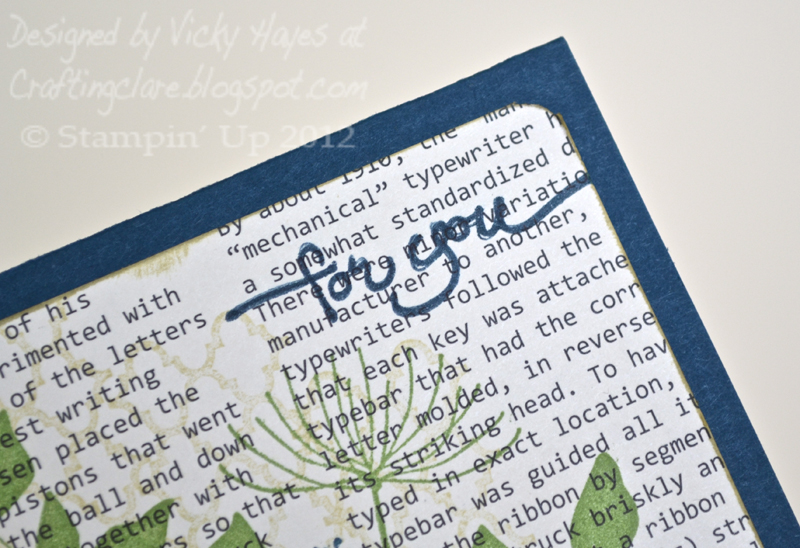 Designed by Vicky Hayes at
Craftingclare.blogspot.com
© Stampin' Up 2012
for you
of his
rimented with
of the letters
est writing
sen placed the
pistons that went
the ball and down
together with
rs so that
by about 1910, the "man
"mechanical" typewriter h
a somewhat standardized d
There were minor variatio
manufacturer to another,
typewriters followed the
that each key was attache
typebar that had the corr
letter molded, in reverse
its striking head. To hav
typed in exact location,
typebar was guided all it
the ribbon by segmen
struck briskly an
a ribbon
) str